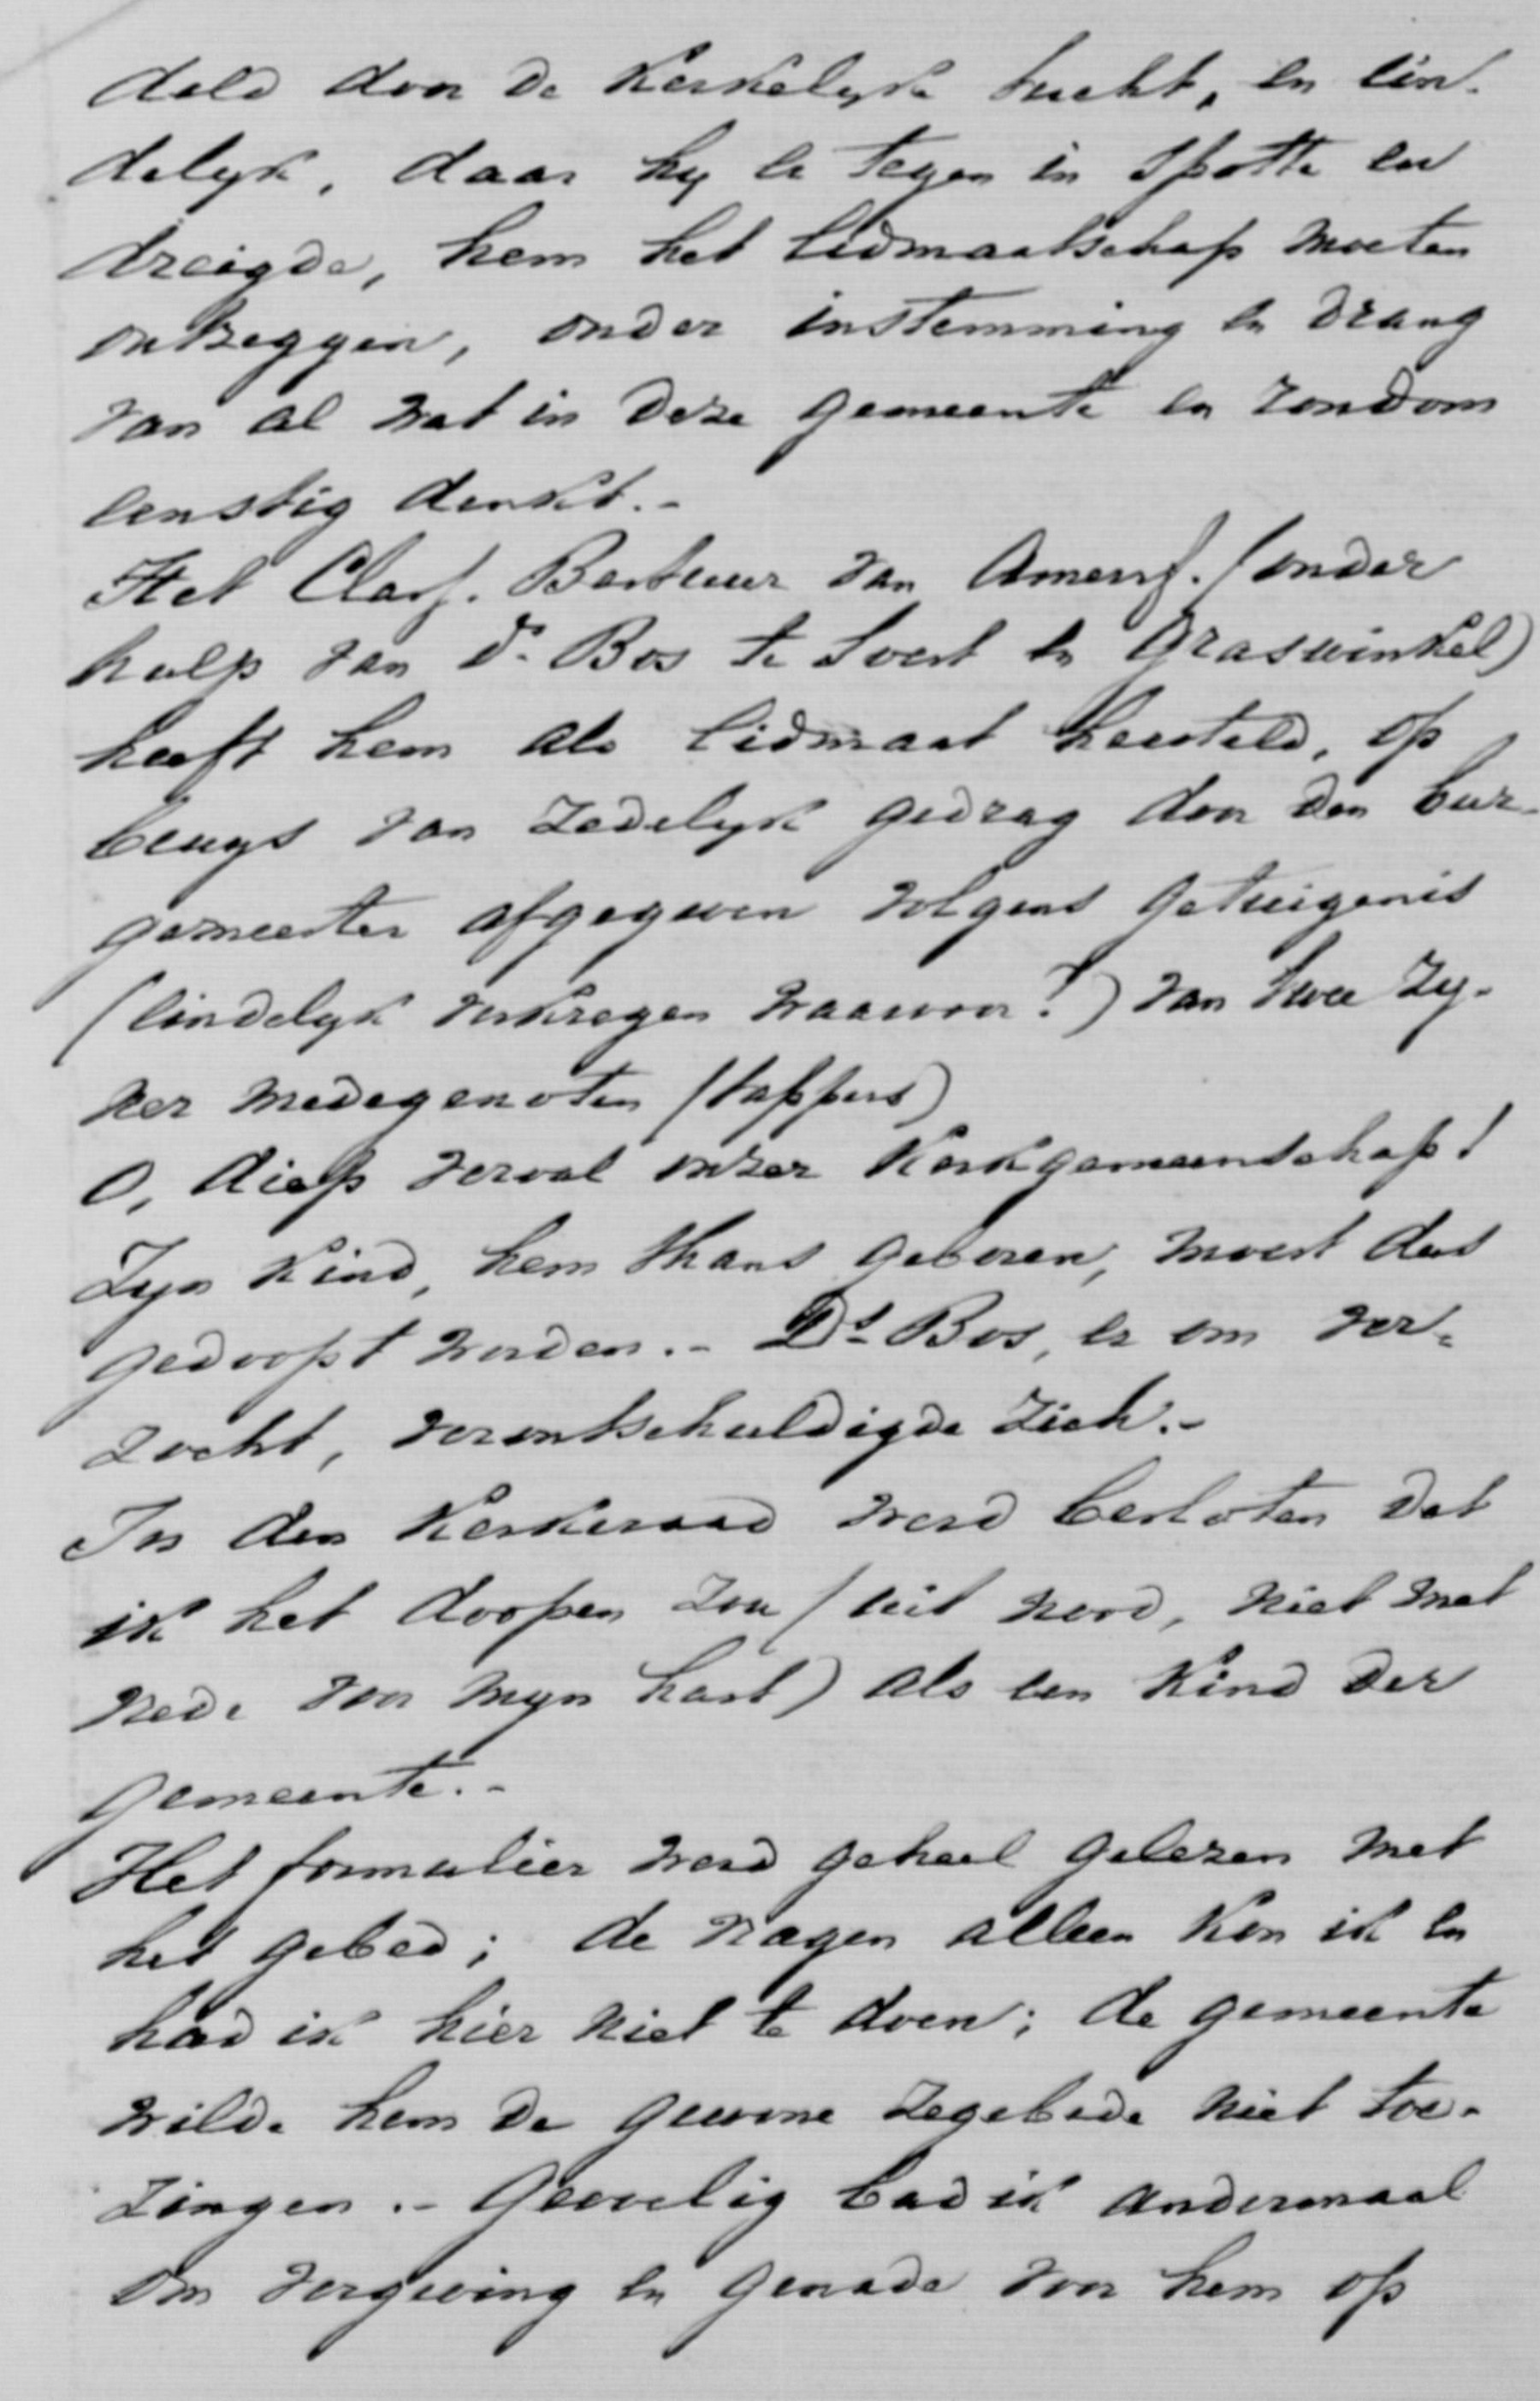 deld door de Kerkelyke tucht, en ein-
delyk, daar hy er tegen in spotte en
dreigde, hem het lidmaatschap moeten
ontzeggen, onder instemming en drang
van al wat in deze gemeente en rondom
ernstig denkt.-
Het Class. Bestuur van Amersf. (onder
hulp van Ds. Bos te Soest en Graswinkel)
heeft hem als lidmaat hersteld, op
bewys van zedelyk gedrag door den bur-
gemeester afgegeven volgens getuigenis
(eindelyk verkregen waarvoor?) van twee zy-
ner medegenoten (tappers)
O, diep verval onzer Kerkgemeenschap!
Zyn Kind, hem thans geboren, moest dus
gedoopt worden.- Ds. Bos, er om ver-
zocht, verontschuldigde zich.-
In den Kerkeraad werd besloten dat
ik het doopen zou (uit nood, niet met
vrede voor myn hart) als een Kind der
gemeente.-
Het formulier werd geheel gelezen met
het gebed; de vragen alleen kon ik en
had ik hier niet te doen; de gemeente
wilde hem de gewone zegebede niet toe-
zingen.- Gevoelig bad ik andermaal
om vergeving en genade voor hem op